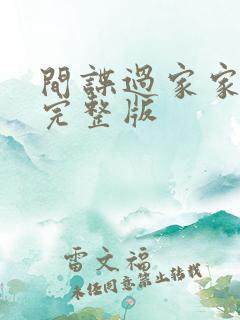 間諜過家家
完整版
雷文福
未任同意禁止转载